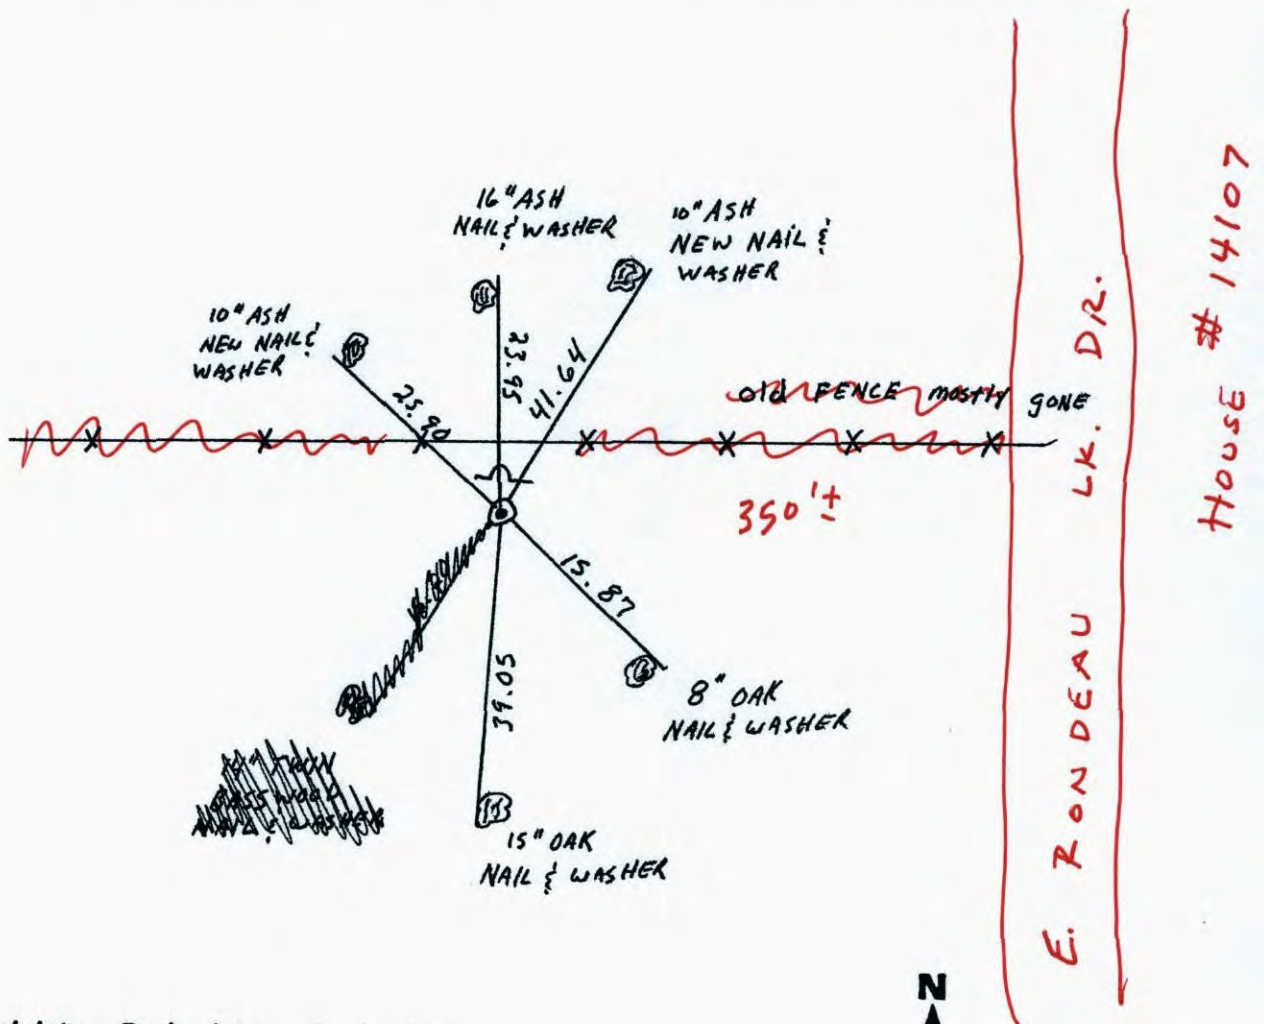 16" ASH
NAIL & WASHER
10" ASH
NEW NAIL &
WASHER
10" ASH
NEW NAIL &
WASHER
23.95
41.64
25.90
old FENCE mostly GONE
350'±
15.87
39.05
8" OAK
NAIL & WASHER
15" OAK
NAIL & WASHER
E. RONDEAU LK. DR.
HOUSE # 14107
N